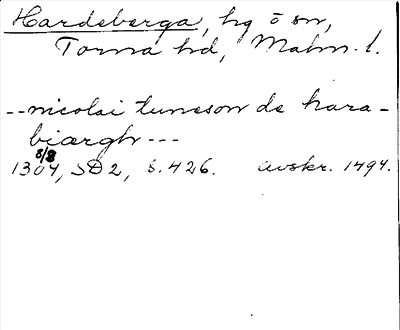 Hardeberga, hg o sn,
Torna hd, Malm. l.
--nicolai tuneson de hara-
biærgh ---
8/8
1304, SD2, s. 426. avskr. 1494.